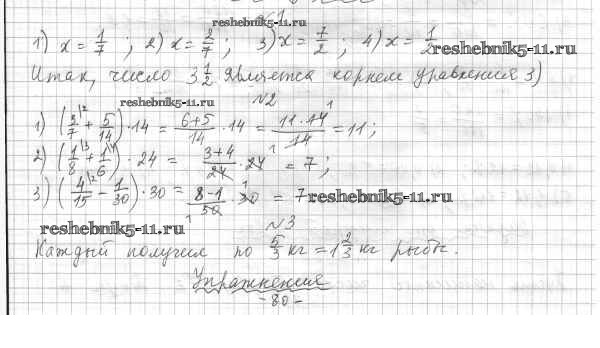 reshebnik5-11.ru
1) x = 1/7 ; 2) x = 2/7 ; 3) x = 7/2 ; 4) x = 1/2
reshebnik5-11.ru
Итак, число 3 1/2 является корнем уравнения 3)
reshebnik5-11.ru
№2
1) (3/7 + 5/14) · 14 = (6+5)/14 · 14 = (11·14)/14 = 11;
2) (1/8 + 1/6) · 24 = (3+4)/24 · 24 = 7;
3) (4/15 - 1/30) · 30 = (8-1)/30 · 30 = 7
reshebnik5-11.ru
reshebnik5-11.ru
№3
Каждый получил по 5/3 кг = 1 2/3 кг рыбы.
Упражнения
- 80 -